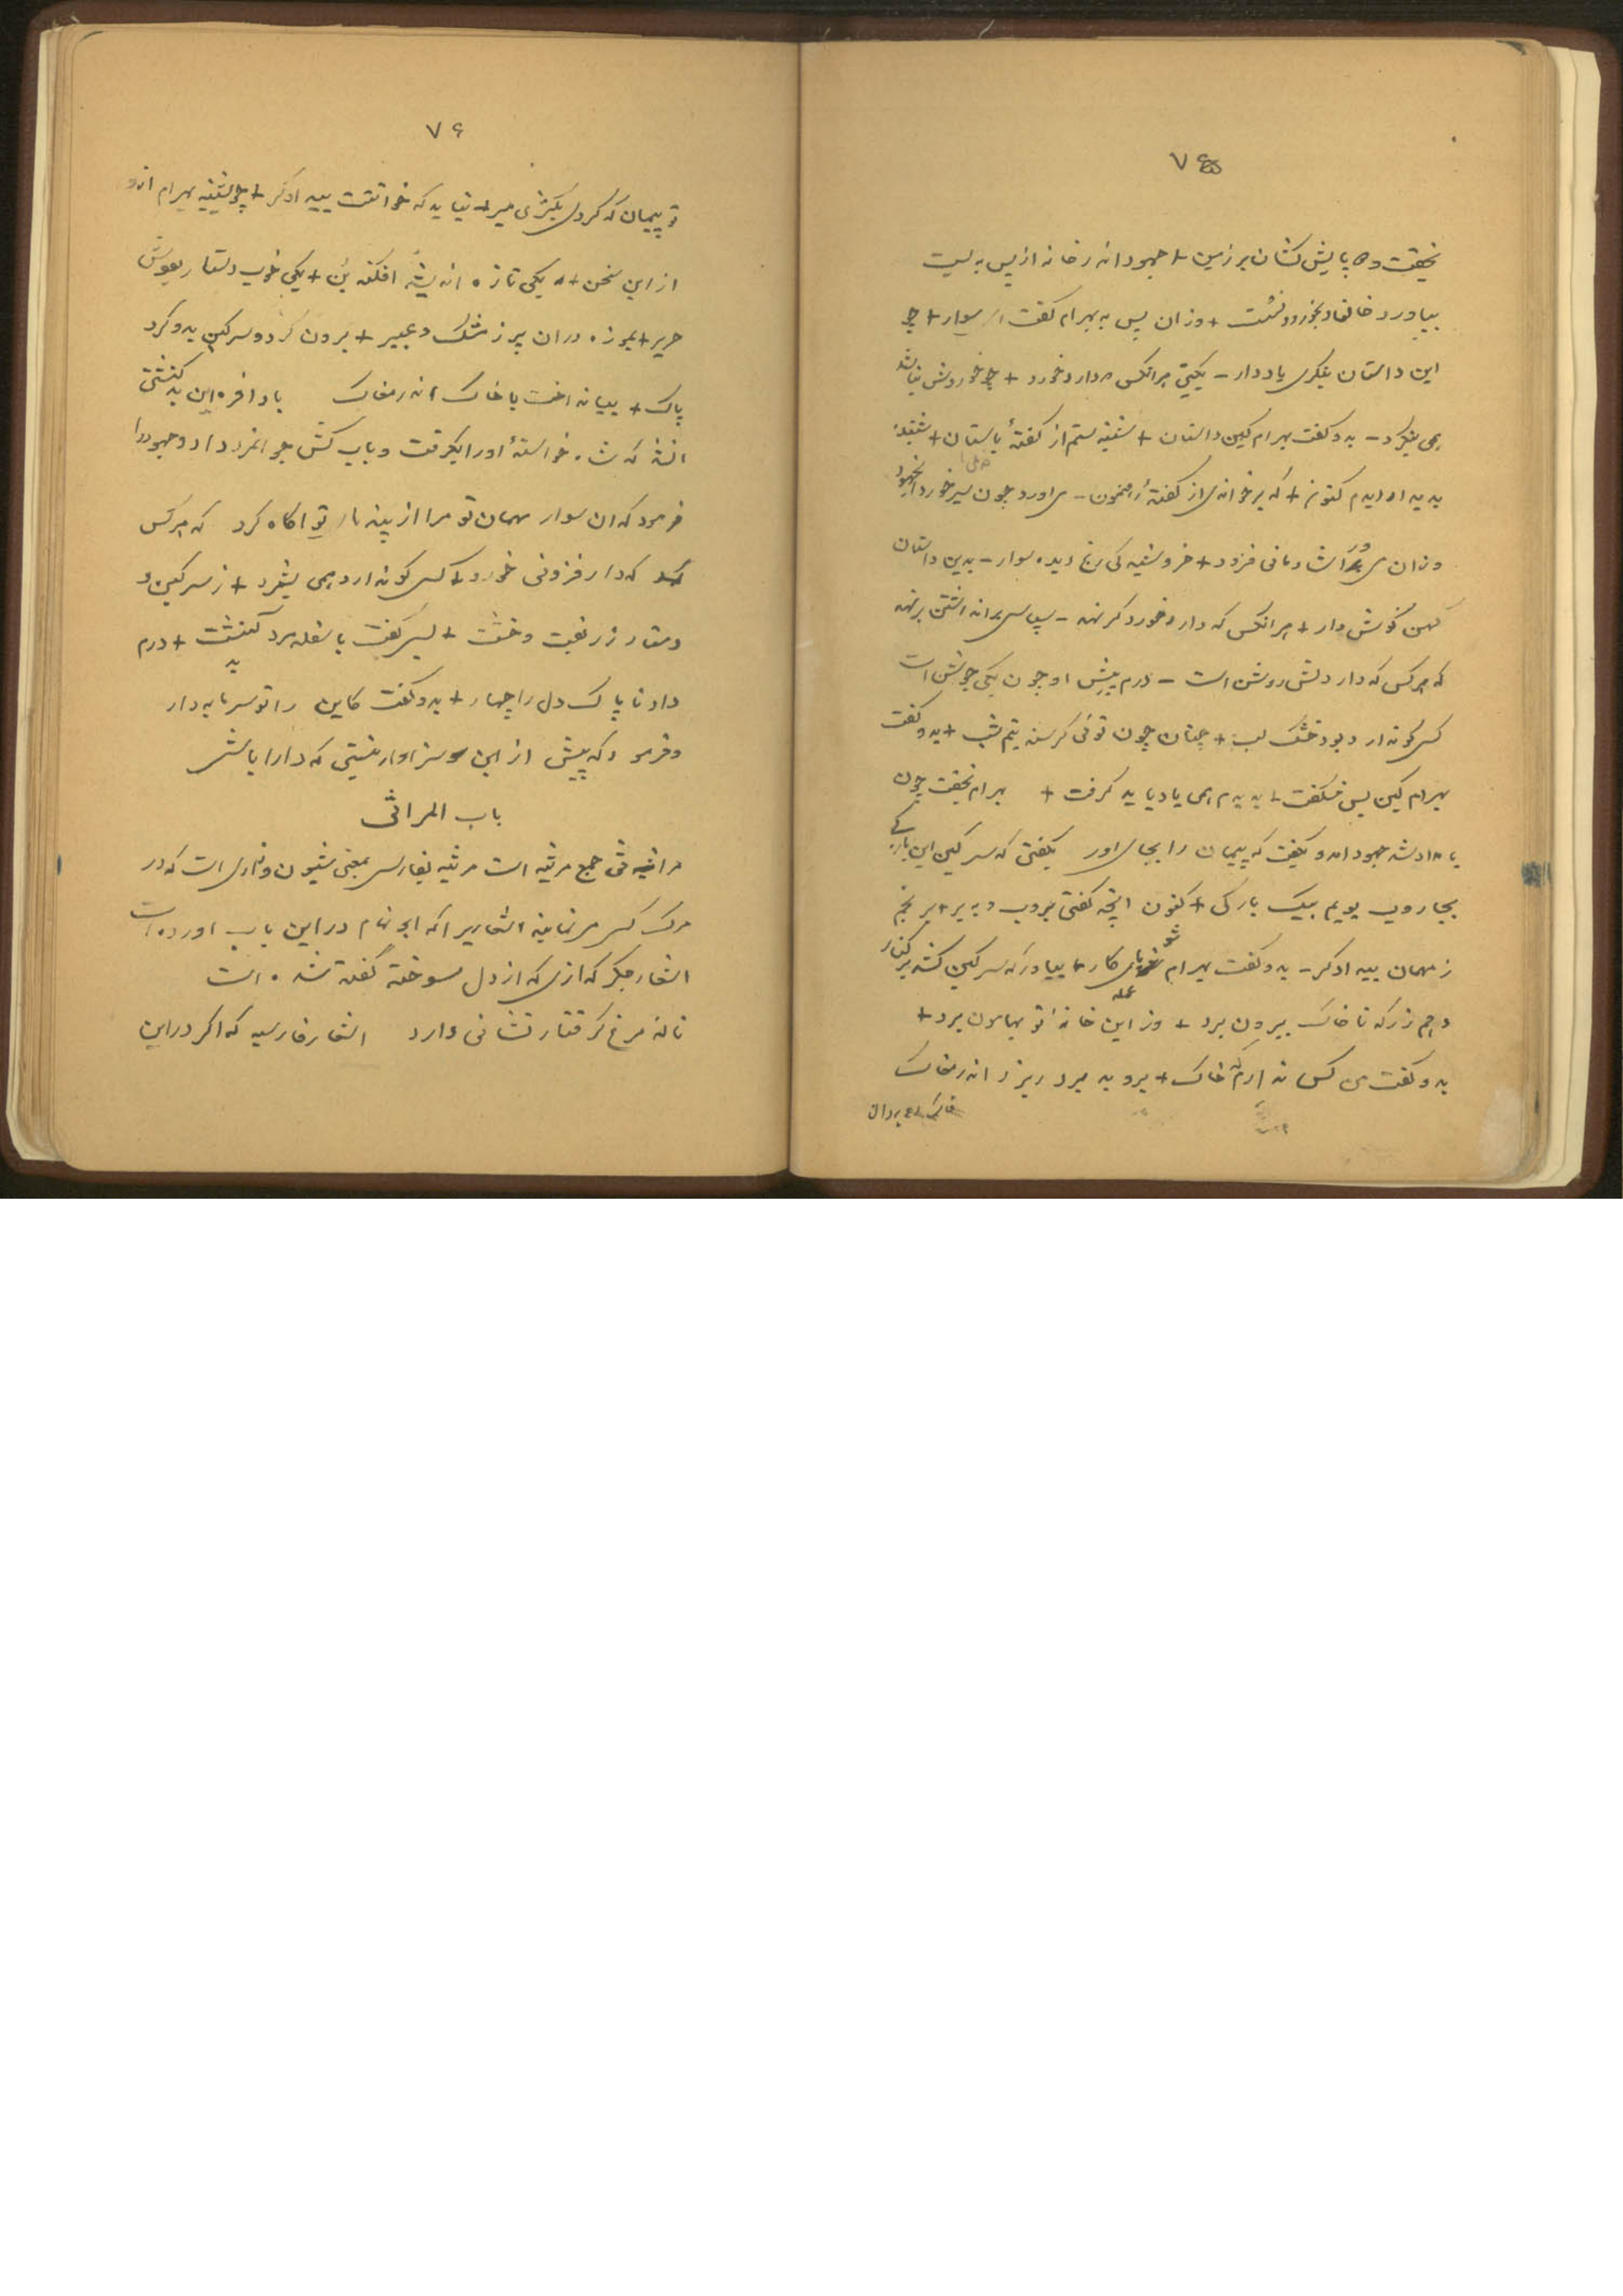 ٧٥
بخفت و دو پایش کشان بر زمین + جهود اندر خانه از پس ببست
بیاورد خوان و بخورد و نشست + وزان پس به بهرام گفت ای سوار + چو
این داستان بشنوی یاددار - بگیتی هرانکس دارد خورد + چو خوردش نباشد
همی بنگرد - بدو گفت بهرام کین داستان + شنیدستم از گفتهٔ باستان + شنیدم
بدیدارم کنون + که برخواندی از گفتهٔ رهنمون - می اورد چون سیر خورد
وزان می ورا شادمانی فزود + خروشید کی رنج دیده سوار - بدین داستان
کهن گوش دار + هرانکس که دارد خورد - سپاسی
که هرکس که دارد دلش روشن است - درم پیش او چون یکی جوشن است
کسی کو ندارد بود خشک لب + چنان چون توئی گرسنه نیم شب + بدو گفت
بهرام کین بس شگفت + بدیدم همی یاد باید گرفت + بهرام بخفت چون
بامداد شد جهود امد و بگفت که پیمان را بجای اور بگفتی که سرگین این بارکی
بجاروب روبم بیک بارگی + کنون انچه گفتی بروب و ببر + برنجم
ز مهمان بیدادگر - بدو گفت بهرام شو پای کار + بیاور که سرگین کشد بر کنار
دهم زر که تا خاک بیرون برد + وز این خانهٔ تو بهامون برد +
بدو گفت من کس ندارم که خاک + بروبد برد ریزد اندر مغاک
٧٦
تو پیمان که کردی بکژی مبر + نباید که خوانمت بیدادگر + چو بشنید بهرام
از این سخن + یکی تازه اندیشه افکند بن + یکی خوب دستار بودش
حریر + بموزه درون پر ز مشک و عبیر + برون کرد و سرگین بدو کرد
پاک + بینداخت با خاک اندر مغاک بادافره این بد کنشتی
انشد که شاه خواستهٔ او را بگرفت و باب کش جوانمرد داد و جهود را
فرمود که ان سوار مهمان تو مرا از پندار تو اگاه کرد که هرکس
که دارد فزونی خورد + کسی کو ندارد همی بشمرد + ز سرگین و
دستار زربفت و خشت + بسی گفت با سفله مرد کنشت + درم
داد ناپاک دل را چهار + بدو گفت کاین را تو سرمایه دار
و فرمود که بیش از این سزاوار نیستی که دارا باشی
باب المراثی
مراثی جمع مرثیه است مرثیه بفارسی بمعنی شیون و زاری است که در
مرگ کسی مینمایند اشعاریرا که ابوتمام در این باب اورده است
اشعار جگرگدازی که از دل سوخته گفته شده است
نالهٔ مرغ گرفتار نشانی دارد اشعار فارسیه که اگر در این